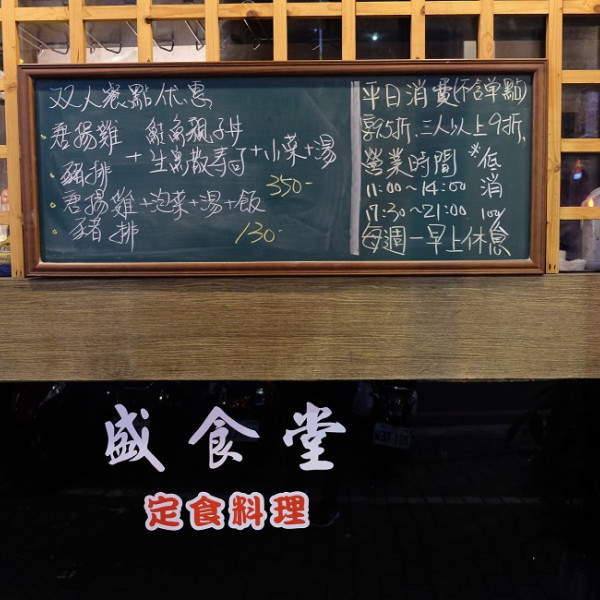 双人餐點优惠
唐揚雞 鮭魚親子丼
+生魚散壽司+小菜+湯
豬排 350-
唐揚雞+泡菜+湯+飯
豬排 130-
平日消費(不含單點)
享9.5折,三人以上9折,
營業時間 ※低
11:00~14:00 消
17:30~21:00 100
每週一早上休息
盛食堂
定食料理